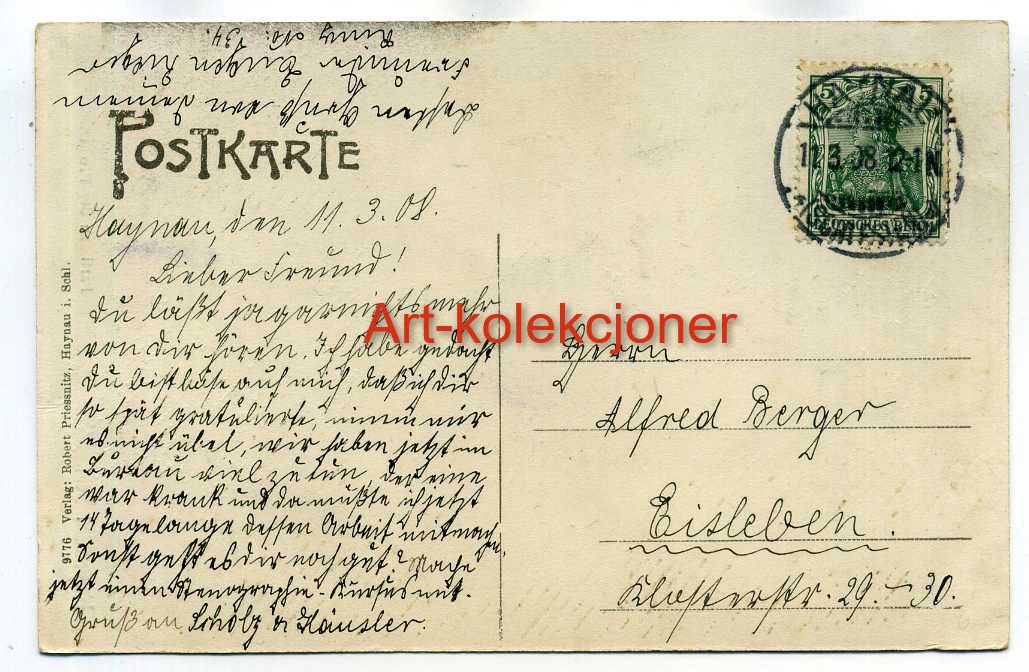 POSTKARTE
Haynau, den 11.3.08.
Lieber Freund!
Du läßt ja gar nichts mehr
von Dir hören. Ich habe gedacht
Du bist böse auf mich, daß ich Dir
so spät gratulierte, nimm mir
es nicht übel, wir haben jetzt im
Bureau viel zu tun, der eine
war krank und da mußte ich jetzt
14 Tage lange dessen Arbeit mitmachen.
Sonst geht es dir noch gut? Mache
jetzt einen Stenographie-Kursus mit.
Gruß an Scholz & Häusler.
Freunde
Ring No: 134.
9776 Verlag: Robert Priessnitz, Haynau i. Schl.
5 5
11.3.08.12-1N
DEUTSCHES REICH
Art-kolekcjoner
Herrn
Alfred Berger
Eisleben.
Klosterstr. 29-30.